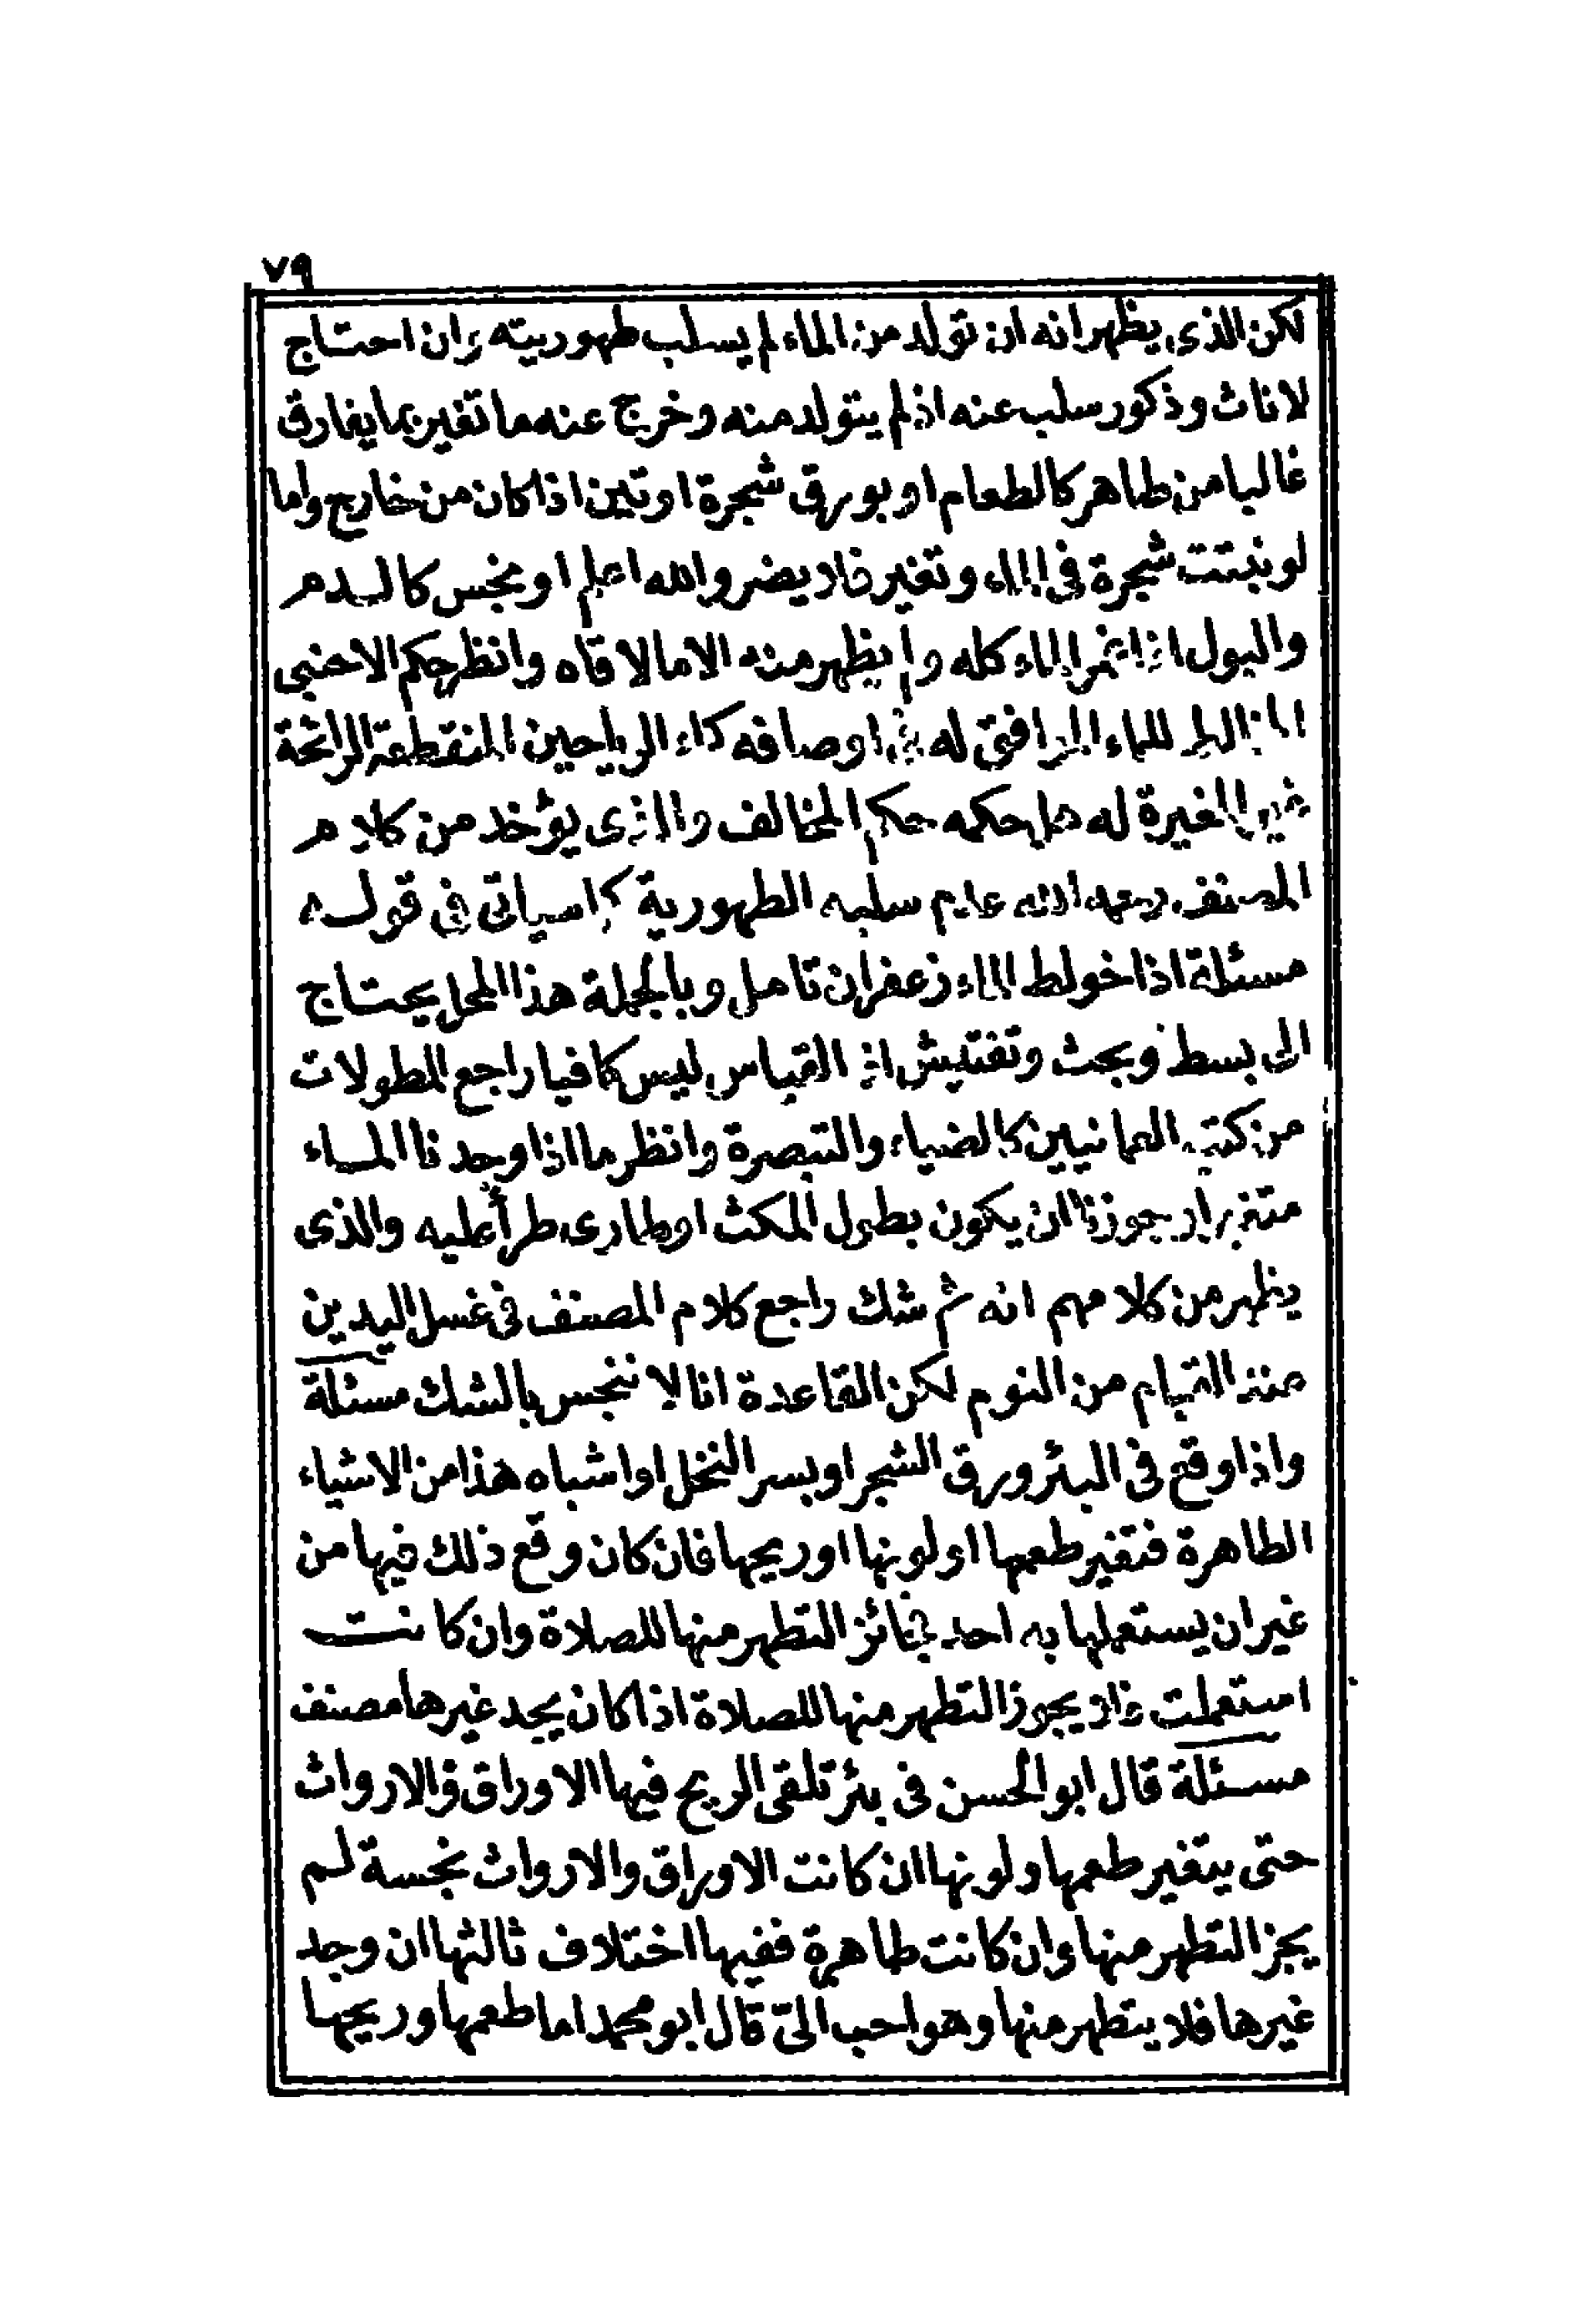 ٧٩
لكن الذي يظهر انه ان تولد من الماء لم يسلب طهوريته وان احتاج
لاناث وذكور سلب عنه اذ لم يتولد منه وخرج عنه ما تغير بما يفارق
غالبا من طاهر كالطعام او بورق شجرة او تبن اذا كان من خارج واما
لو نبتت شجرة في الماء وتغير فلا يضر والله اعلم او نجس كالدم
والبول اذا غمر الماء كله ولم يظهر منه الا ما لاقاه وانظر حكم الاجنبي
المخالط للماء الموافق له في اوصافه كماء الرياحين المنقطعة الرائحة
غير المغيرة له هل حكمه حكم المخالف والذي يؤخذ من كلام
المصنف رحمه الله عدم سلبه الطهورية كما سياتي في قوله
مسئلة اذا خولط الماء زعفران تامل وبالجملة هذا المحل يحتاج
الى بسط وبحث وتفتيش اذ القياس ليس كافيا راجع المطولات
من كتب العمانيين كالضياء والتبصرة وانظر ما اذا وجدنا الماء
متغيرا وجوزنا ان يكون بطول المكث او طارى طرأ عليه والذي
يظهر من كلامهم انه ثم شك راجع كلام المصنف في غسل اليدين
عند القيام من النوم لكن القاعدة انا لا ننجس بالشك مسئلة
واذا وقع في البئر ورق الشجر او بسر النخل او اشباه هذا من الاشياء
الطاهرة فتغير طعمها او لونها او ريحها فان كان وقع ذلك فيها من
غير ان يستعملها به احد فجائز التطهر منها للصلاة وان كانت
استعملت فلا يجوز التطهر منها للصلاة اذا كان يجد غيرها مصنف
مسئلة قال ابو الحسن في بئر تلقى الريح فيها الاوراق والارواث
حتى يتغير طعمها ولونها ان كانت الاوراق والارواث نجسة لم
يجز التطهر منها وان كانت طاهرة ففيها اختلاف ثالثها ان وجد
غيرها فلا يتطهر منها وهو احب الي قال ابو محمد اما طعمها وريحها